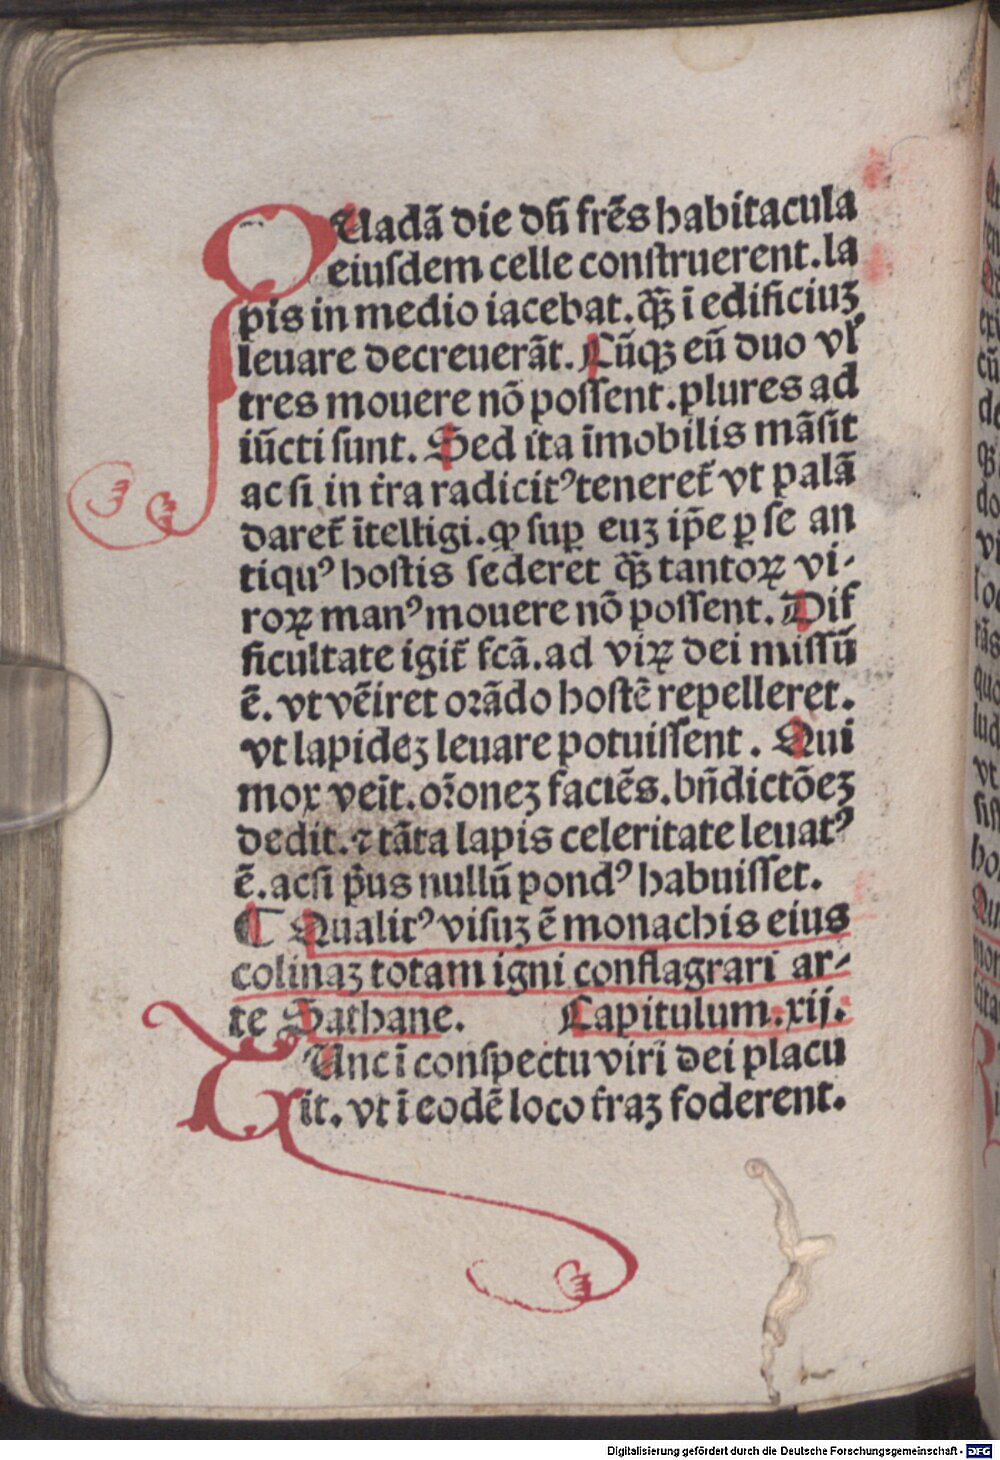 QUadã die dũ frẽs habitacula
eiuſdem celle conſtruerent.la
pis in medio iacebat.quẽ ĩ edificiuꝫ
leuare decreuerãt. Cũqꝫ eũ duo vl̓
tres mouere nõ poſſent.plures ad
iũcti ſunt. Sed ita ĩmobilis mãſit
ac ſi in tr̃a radicitꝰ teneret̃ vt palã
daret̃ ĩtelligi.ꝙ ſuꝑ euꝫ ip̃e ꝑ ſe an
tiquꝰ hoſtis ſederet quẽ tantoꝝ vi⸗
roꝝ manꝰ mouere nõ poſſent. Dif
ficultate igit̃ fcã.ad viꝝ dei miſſũ
ẽ. vt vẽiret orãdo hoſtẽ repelleret.
vt lapideꝫ leuare potuiſſent . Qui
mox veĩt.or̃oneꝫ faciẽs.bñdictõeꝫ
dedit.⁊ tãta lapis celeritate leuatꝰ
ẽ.acſi p̃us nullũ pondꝰ habuiſſet.
¶ Qualitꝰ viſuꝫ ẽ monachis eius
colinaꝫ totam igni conflagrari ar⸗
te Sathane. Capitulum.xij.
TUnc ĩ conſpectu viri dei placu
it. vt ĩ eodẽ loco t̃raꝫ foderent.
Digitalisierung gefördert durch die Deutsche Forschungsgemeinschaft - DFG